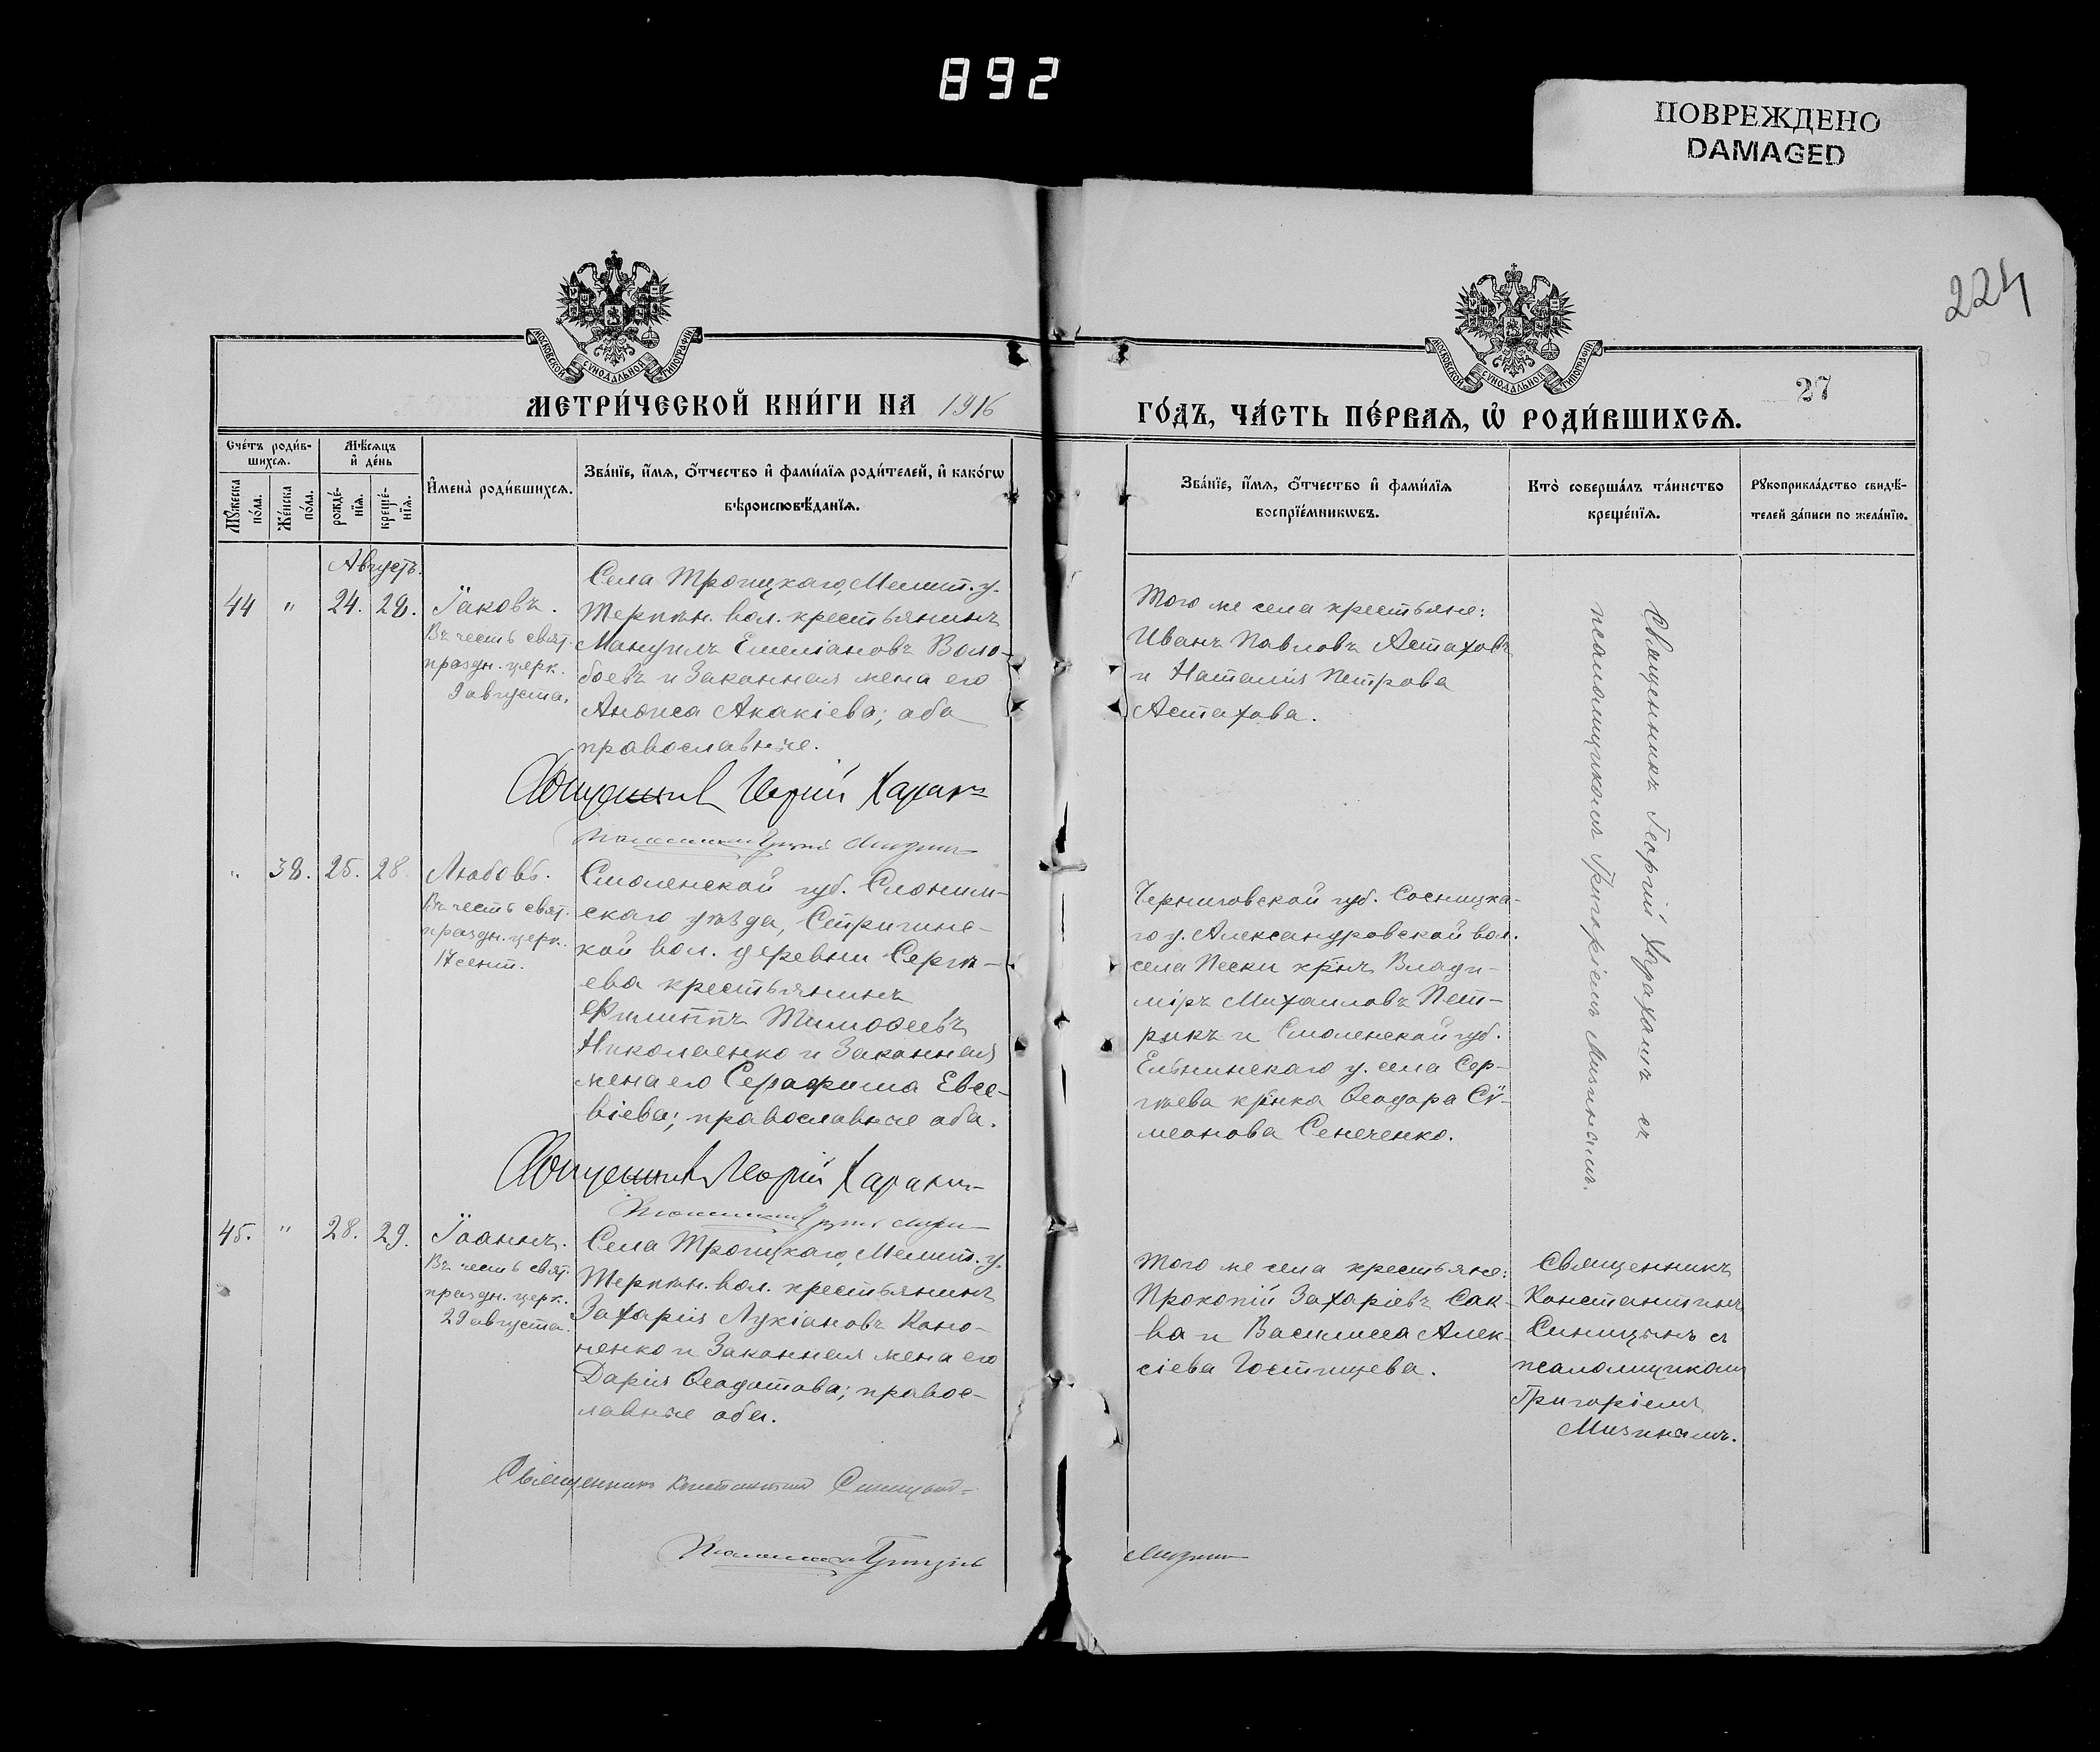 892
ПОВРЕЖДЕНО
DAMAGED
224
27
МОСКОВСКОЙ СѴНОДАЛЬНОЙ ТИПОГРАФІИ
МОСКОВСКОЙ СѴНОДАЛЬНОЙ ТИПОГРАФІИ
МЕТРИ́ЧЕСКОЙ КНИ́ГИ НА 1916
ГО́ДЪ, ЧА́СТЬ ПЕ́РВАѦ, Ѡ҆ РОДИ́ВШИХСѦ.
Сче́тъ роди́в-
шихсѧ.
Мꙋ́жеска по́ла.
Же́нска по́ла.
Мѣ́сѧцъ
и҆ де́нь
рожде́-
нїѧ.
креще́-
нїѧ.
И҆мена̀ роди́вшихсѧ.
Зва́нїе, и҆́мѧ, ѻ҆́тчество и҆ фами́лїѧ роди́телей, и҆ како́гѡ
вѣроисповѣ́данїѧ.
Зва́нїе, и҆́мѧ, ѻ҆́тчество и҆ фами́лїѧ
воспрїе́мникѡвъ.
Кто̀ соверша́лъ та́инство
креще́нїѧ.
Рꙋкоприкла́дство свидѣ́-
телей за́писи по жела́нїю.
Августъ.
44 " 24. 28.
Іаковъ.
Въ честь свят.
праздн. церк.
9 августа.
Села Троицкаго, Мелит. у.
Терпѣн. вол. крестьянинъ
Мануилъ Емеліановъ Воло-
боевъ и законная жена его
Анѳиса Акакіева; оба
православные.
Священникъ Георгій
Того же села крестьяне:
Иванъ Павловъ Астаховъ
и Наталія Петрова
Астахова.
Священникъ Георгій съ
псаломщикомъ Григоріемъ Мизинымъ.
" 38. 25. 28
Любовь.
Въ честь свят.
праздн. церк.
17 сент.
Смоленской губ.
скаго уѣзда,
кой вол. деревни Сергѣ-
ева крестьянинъ
Филиппъ Тимоѳеевъ
Николаенко и законная
жена его Серафима Евсе-
віева; православные оба.
Священникъ Георгій
Черниговской губ. Сосницка-
го у. Александровской вол.
села Пески кр-нъ Влади-
міръ Михаиловъ Пет-
рыкъ и Смоленской губ.
Ельнинскаго у. села Сер-
гѣева кр-нка Ѳеодора Сѵ-
меонова Сенеченко.
45. " 28. 29.
Іоаннъ.
Въ честь свят.
праздн. церк.
29 августа.
Села Троицкаго, Мелит. у.
Терпѣн. вол. крестьянинъ
Захарія Лукіановъ Коно-
ненко и законная жена его
Дарія Ѳеодотова; правос-
лавные оба.
Того же села крестьяне:
Прокопій Захаріевъ Сак-
ва и Василисса Алек-
сіева Гостищева.
Священникъ
Константинъ
Синицынъ съ
псаломщикомъ
Григоріемъ
Мизинымъ.
Священникъ Константинъ Синицынъ
Псаломщикъ Григорій
Мизинъ